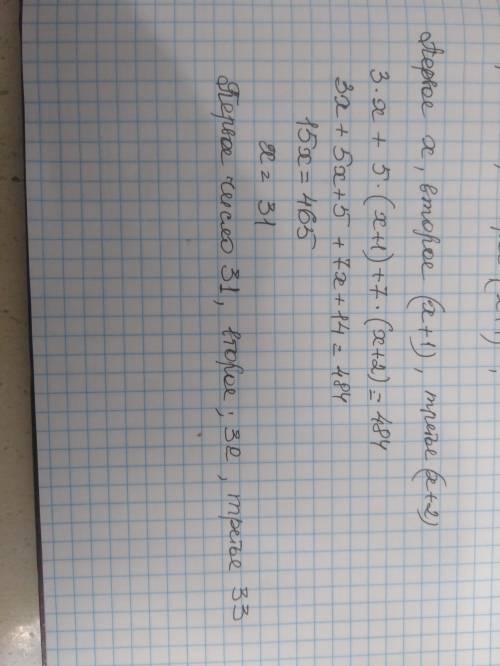 Первое x, второе (x+1), третье (x+2)
3·x + 5·(x+1)+7·(x+2)=484
3x + 5x+5 +7x+14=484
15x=465
x= 31
Первое число 31, второе; 32, третье 33